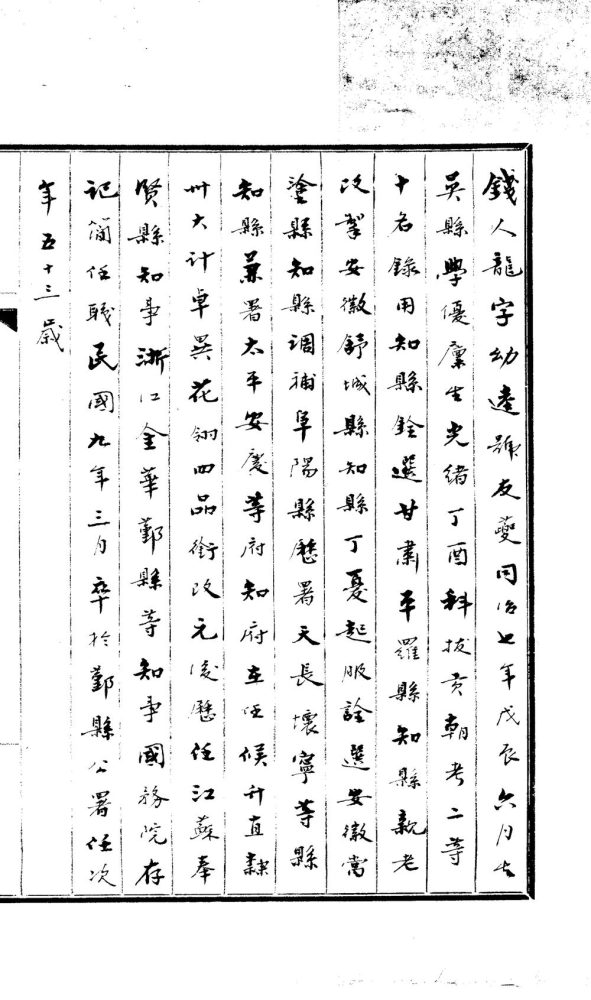 錢人龍字幼逵號友夔同治七年戊辰六月生
吳縣學優廩生光緒丁酉科拔貢朝考二等
十名錄用知縣銓選甘肅平羅縣知縣親老
改掣安徽舒城縣知縣丁憂起服詮選安徽當
塗縣知縣調補阜陽縣歷署天長懷寧等縣
知縣兼署太平安慶等府知府在任候升直隸
州大計卓異花翎四品銜改元後歷任江蘇奉
賢縣知事浙江金華鄞縣等知事國務院存
記簡任職民國九年三月卒於鄞縣公署任次
年五十三歲